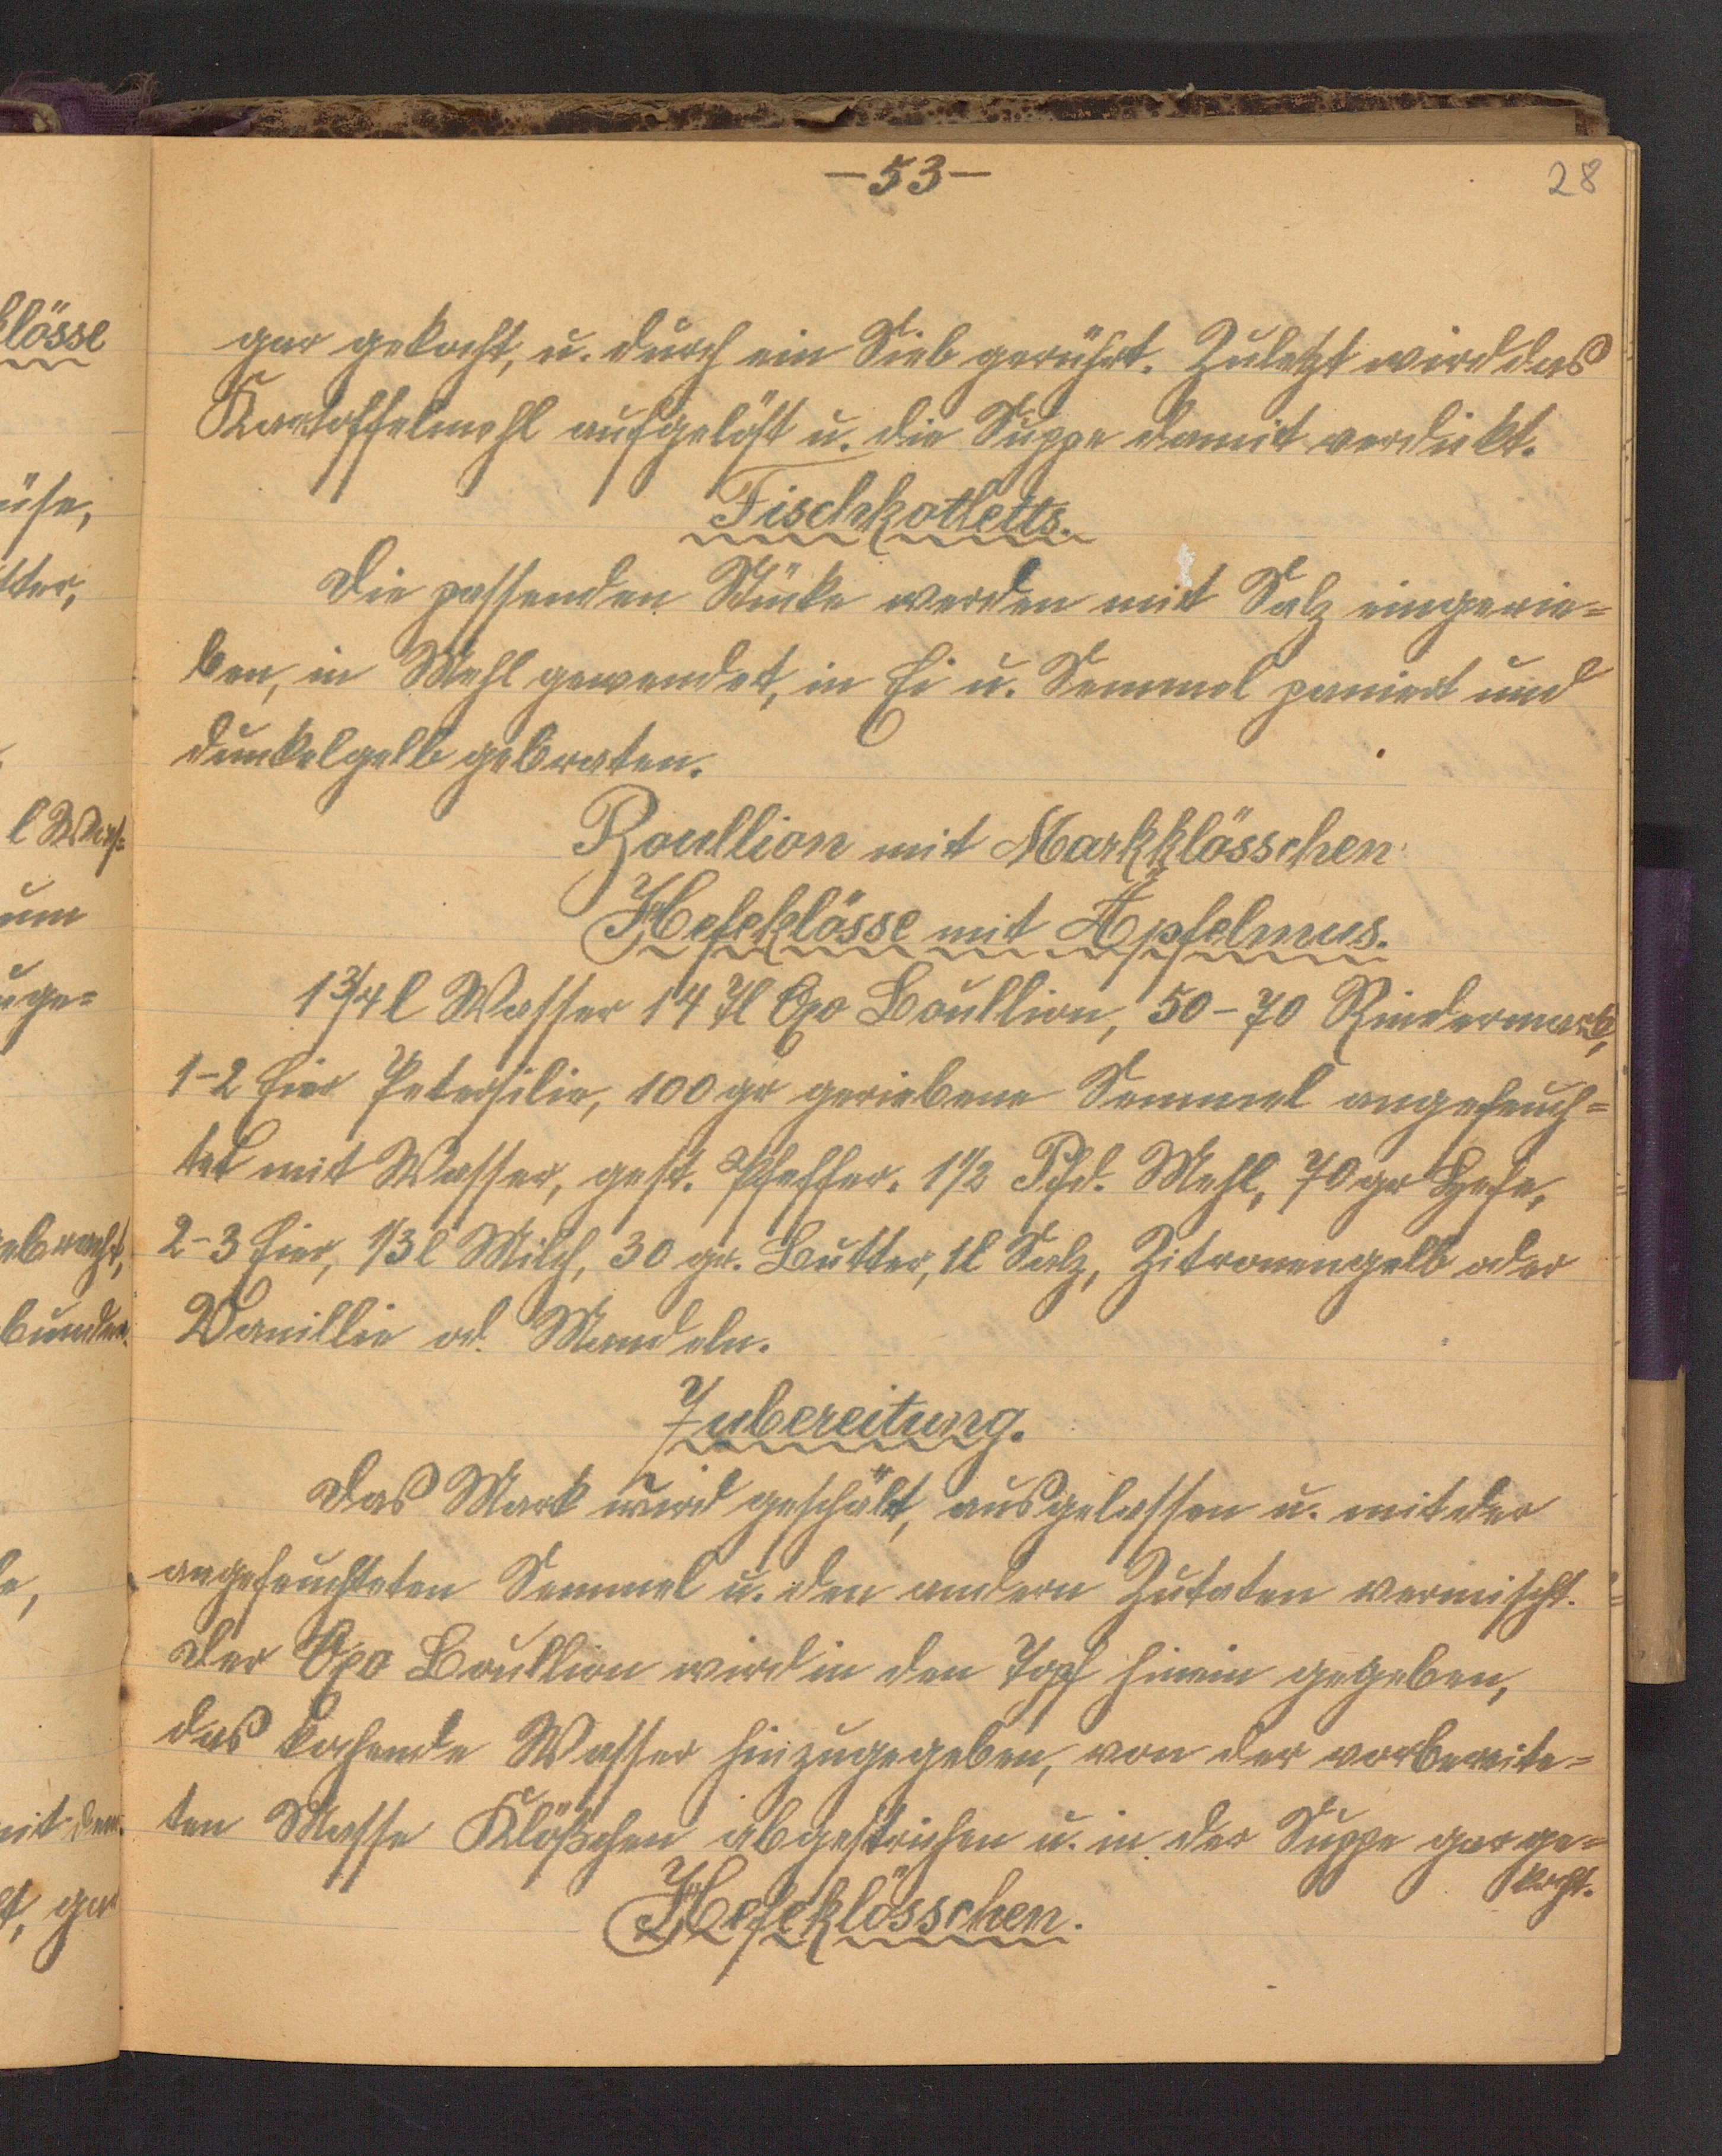 -53-
28
gar gekocht, u. durch ein Sieb gerührt. Zuletzt wird das
Kartoffelmehl aufgelöst u. die Suppe damit verdickt.
Fischkotletts.
Die passenden Stücke werden mit Salz eingerie=
ben, in Mehl gewendet, in Ei u. Semmel paniert und
dunkelgelb gebraten.
Boullion mit Markklösschen
Hefeklösse mit Äpfelmus.
1 3/4 l Wasser 14 Oxo Boullion, 50-70 Rindermark,
1-2 Eier Petersilie, 100 gr geriebene Semmel angefeuch=
tet mit Wasser, gest. Pfeffer. 1 1/2 Pfd. Mehl, 70 gr Hefe,
2-3 Eier, 1/3 l Milch, 30 gr. Butter, 1 l Salz, Zitronengelb oder
Vanillie od. Mandeln.
Zubereitung.
Das Mark wird geschält, ausgelassen u. mit der
angefeuchteten Semmel u. den andern Zutaten vermischt.
Der Oxo Boullion wird in den Topf hinein gegeben,
das kochende Wasser hinzugegeben, von der vorbereite=
ten Masse Klößchen abgestrichen u. in der Suppe gar ge=
kocht.
Hefeklösschen.
klösse
üse,
tter,
l Was=
um
uge=
ebracht,
bunden.
mit dem
t, gar